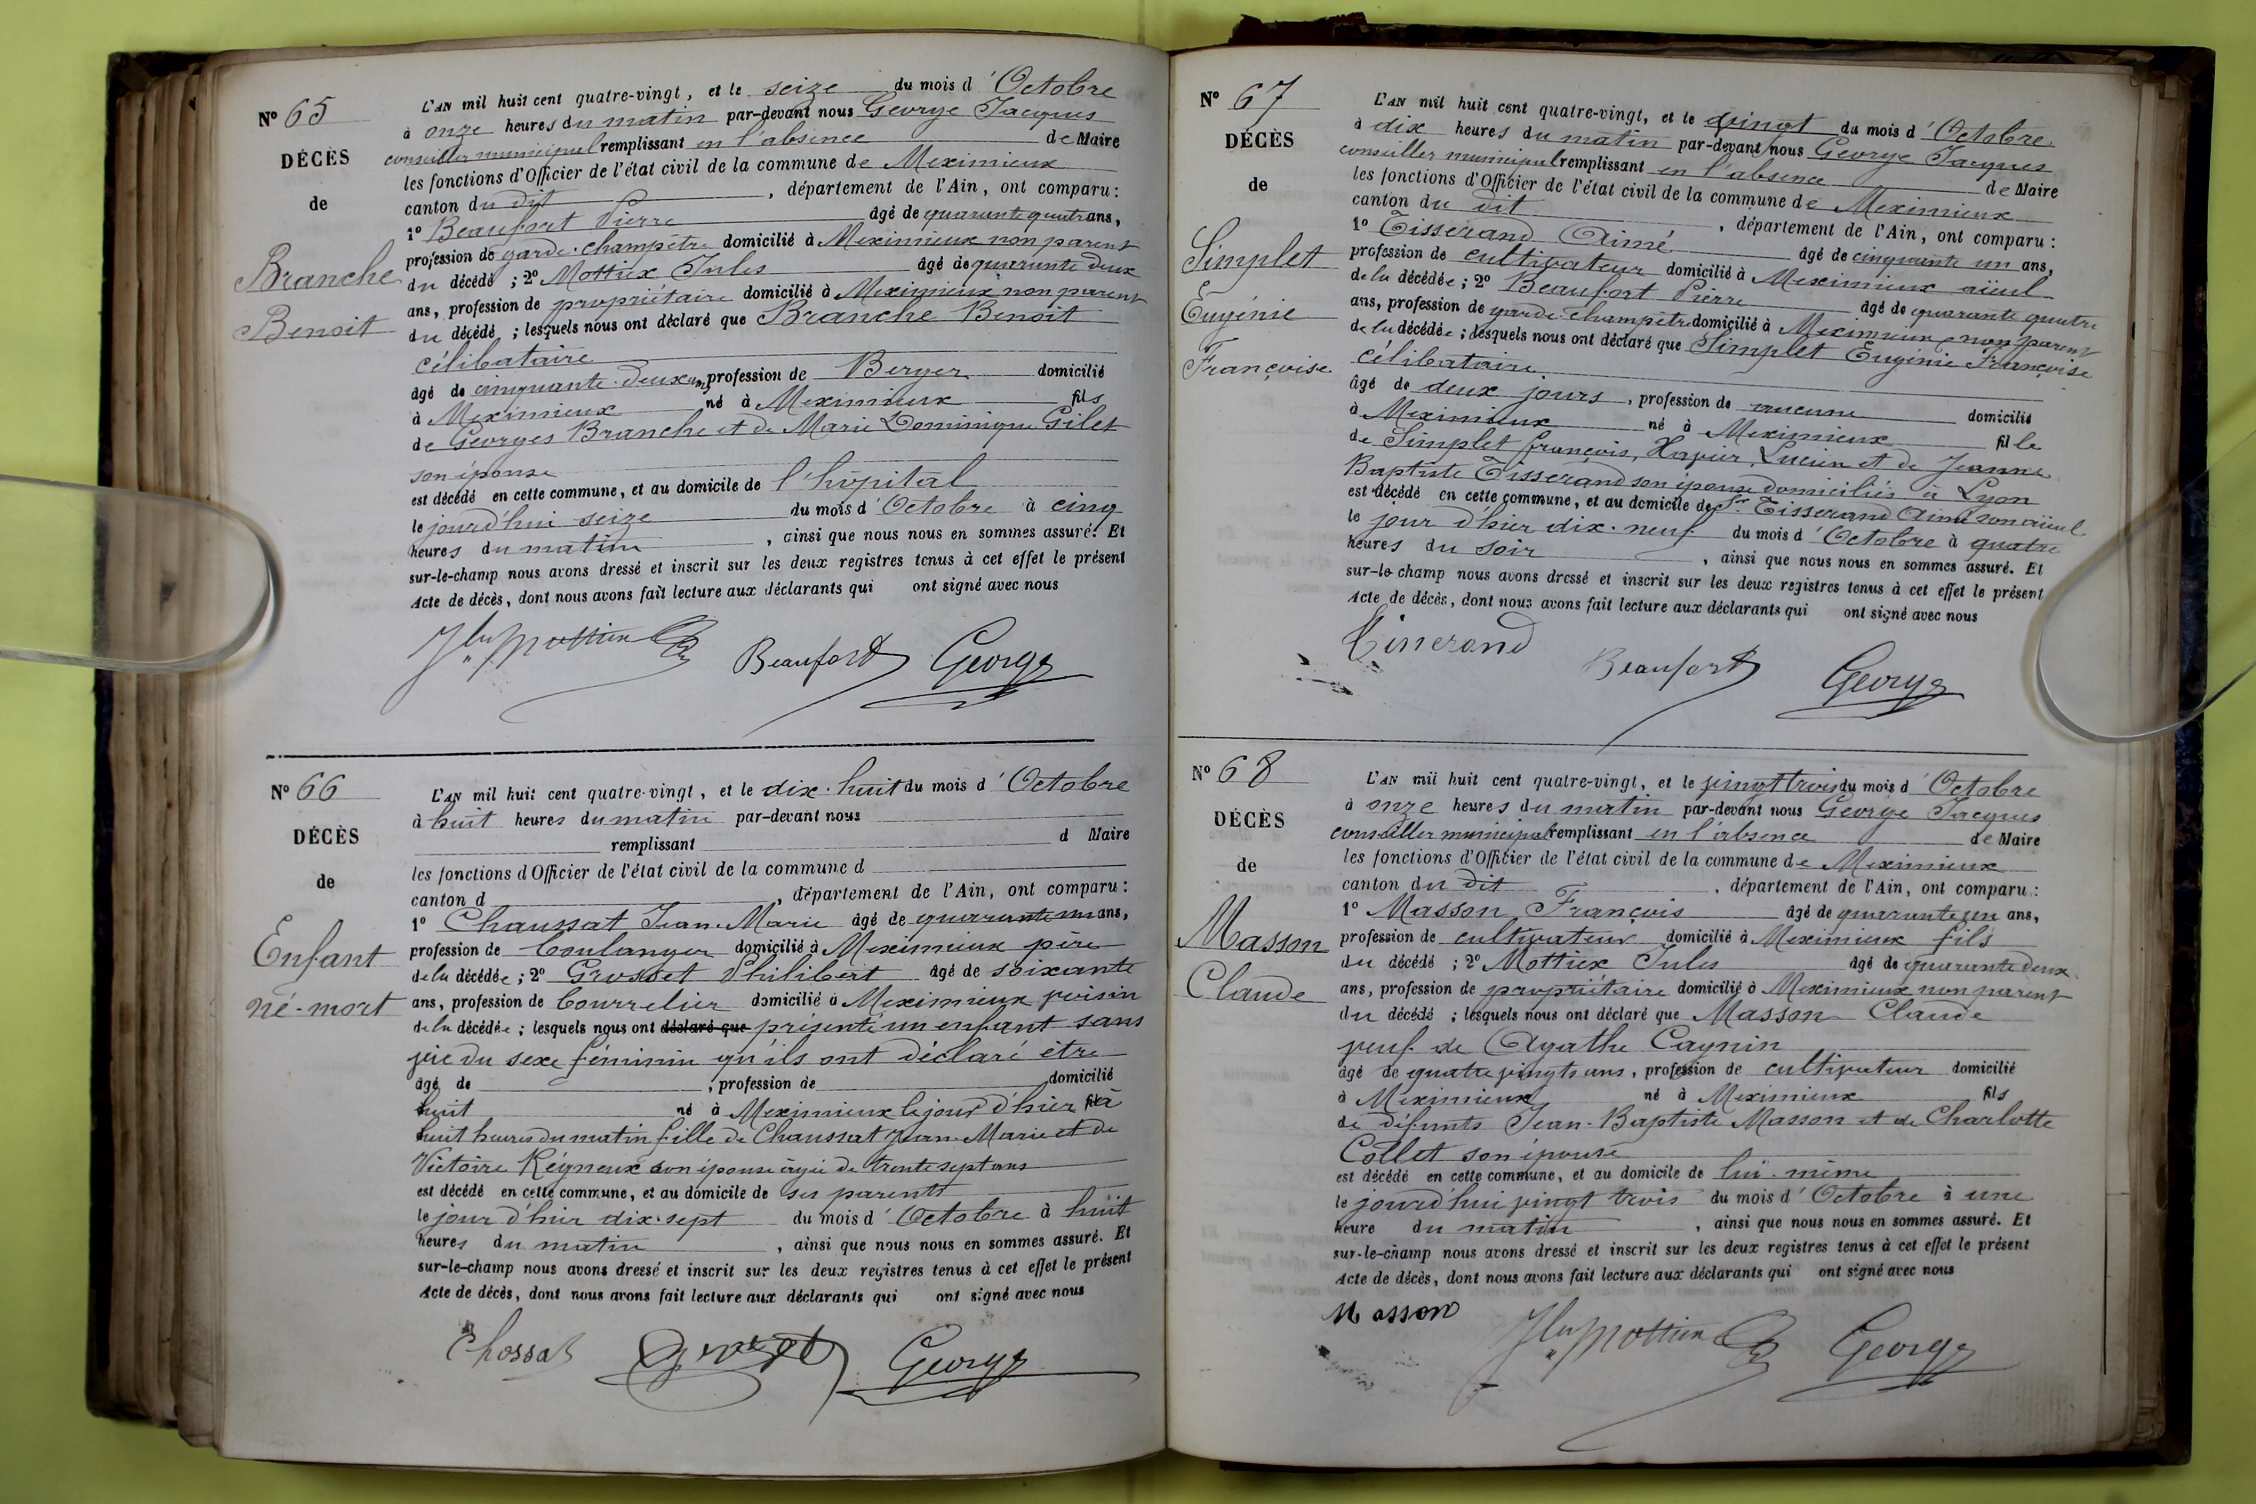 N° 65
DÉCÈS
de
Branche
Benoit
L'AN mil huit cent quatre-vingt, et le seize du mois d'Octobre
à onze heures du matin par-devant nous George Jacques
conseiller municipal remplissant en l'absence de Maire
les fonctions d'Officier de l'état civil de la commune de Meximieux
canton du dit, département de l'Ain, ont comparu :
1° Beaufort Pierre âgé de quarante quatre ans,
profession de garde-champêtre domicilié à Meximieux non parent
du décédé ; 2° Mottiex Jules âgé de quarante deux
ans, profession de propriétaire domicilié à Meximieux non parent
du décédé ; lesquels nous ont déclaré que Branche Benoit
célibataire
âgé de cinquante-deux ans, profession de Berger domicilié
à Meximieux né à Meximieux fils
de Georges Branche et de Marie Dominique Gilet
son épouse
est décédé en cette commune, et au domicile de l'hôpital
le jourd'hui seize du mois d'Octobre à cinq
heures du matin, ainsi que nous nous en sommes assuré. Et
sur-le-champ nous avons dressé et inscrit sur les deux registres tenus à cet effet le présent
Acte de décès, dont nous avons fait lecture aux déclarants qui ont signé avec nous
Beaufort George
N° 66
DÉCÈS
de
Enfant
né-mort
L'AN mil huit cent quatre-vingt, et le dix-huit du mois d'Octobre
à huit heures du matin par-devant nous
remplissant d Maire
les fonctions d'Officier de l'état civil de la commune d
canton d , département de l'Ain, ont comparu :
1° Chaussat Jean-Marie âgé de quarante un ans,
profession de boulanger domicilié à Meximieux père
de la décédée ; 2° Grosset Philibert âgé de soixante
ans, profession de bourrelier domicilié à Meximieux voisin
de la décédée ; lesquels nous ont déclaré que présenté un enfant sans
vie du sexe féminin qu'ils ont déclaré être
âgé de , profession de domicilié
né à Meximieux le jour d'hier à
huit heures du matin fille de Chaussat Jean-Marie et de
Victoire Régneux son épouse âgée de trente sept ans
est décédé en cette commune, et au domicile de ses parents
le jour d'hier dix-sept du mois d'Octobre à huit
heures du matin, ainsi que nous nous en sommes assuré. Et
sur-le-champ nous avons dressé et inscrit sur les deux registres tenus à cet effet le présent
Acte de décès, dont nous avons fait lecture aux déclarants qui ont signé avec nous
Chossat George
N° 67
DÉCÈS
de
Simplet
Eugénie
Françoise
L'AN mil huit cent quatre-vingt, et le vingt du mois d'Octobre
à dix heures du matin par-devant nous George Jacques
conseiller municipal remplissant en l'absence de Maire
les fonctions d'Officier de l'état civil de la commune de Meximieux
canton du dit, département de l'Ain, ont comparu :
1° Tisserand Aimé âgé de cinquante un ans,
profession de cultivateur domicilié à Meximieux aïeul
de la décédée ; 2° Beaufort Pierre âgé de quarante quatre
ans, profession de garde champêtre domicilié à Meximieux non parent
de la décédée ; lesquels nous ont déclaré que Simplet Eugénie Françoise
célibataire
âgé de deux jours, profession de aucune domicilié
à Meximieux né à Meximieux fille
de Simplet françois, Xavier, Lucien et de Jeanne
Baptiste Tisserand son épouse domiciliés à Lyon
est décédé en cette commune, et au domicile de Sr Tisserand Aimé son aïeul
le jour d'hier dix-neuf du mois d'Octobre à quatre
heures du soir, ainsi que nous nous en sommes assuré. Et
sur-le-champ nous avons dressé et inscrit sur les deux registres tenus à cet effet le présent
Acte de décès, dont nous avons fait lecture aux déclarants qui ont signé avec nous
Tisserand Beaufort George
N° 68
DÉCÈS
de
Masson
Claude
L'AN mil huit cent quatre-vingt, et le vingt trois du mois d'Octobre
à onze heures du matin par-devant nous George Jacques
conseiller municipal remplissant en l'absence de Maire
les fonctions d'Officier de l'état civil de la commune de Meximieux
canton du dit, département de l'Ain, ont comparu :
1° Masson François âgé de quarante un ans,
profession de cultivateur domicilié à Meximieux fils
du décédé ; 2° Mottiex Jules âgé de quarante deux
ans, profession de propriétaire domicilié à Meximieux non parent
du décédé ; lesquels nous ont déclaré que Masson Claude
veuf de Agathe Caynin
âgé de quatre vingts ans, profession de cultivateur domicilié
à Meximieux né à Meximieux fils
de défunts Jean-Baptiste Masson et de Charlotte
Collet son épouse
est décédé en cette commune, et au domicile de lui-même
le jourd'hui vingt trois du mois d'Octobre à une
heure du matin, ainsi que nous nous en sommes assuré. Et
sur-le-champ nous avons dressé et inscrit sur les deux registres tenus à cet effet le présent
Acte de décès, dont nous avons fait lecture aux déclarants qui ont signé avec nous
Masson George